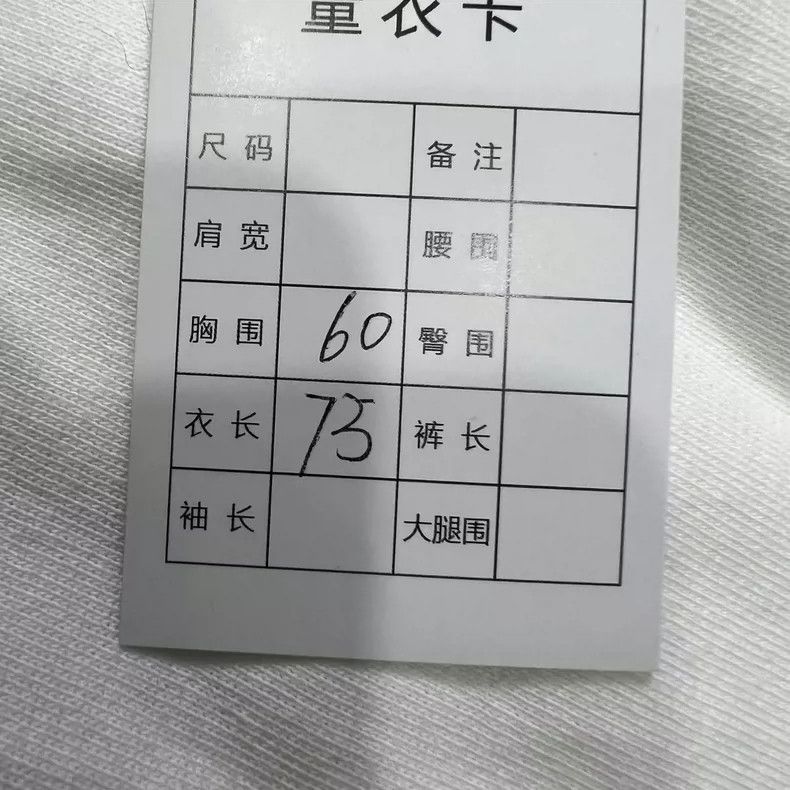 量衣卡
尺码 备注
肩宽 腰围
胸围 60 臀围
衣长 75 裤长
袖长 大腿围